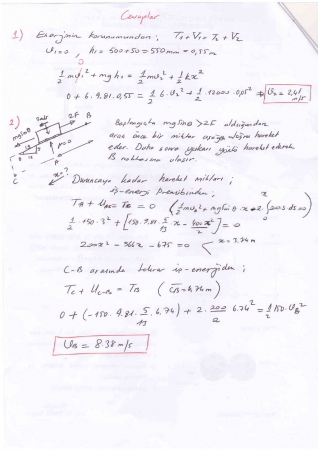 Cevaplar
1) Enerjinin korunumundan ; T₁+V₁ = T₂+V₂
v₁=0 , h₁ = 500+50 = 550mm = 0,55m
½mv₁² + mgh₁ = ½mv₂² + ½kx²
0 + 6.9,81.0,55 = ½ 6.v₂² + ½ 12000.0,05² ⇒ v₂ = 2,41 m/s
2) Başlangıçta mgsinθ > 2F olduğundan
araç önce bir miktar aşağıya doğru hareket
eder. Daha sonra yukarı yönlü hareket ederek
B noktasına ulaşır.
mgsinθ 2F B
x=?
C
Duruncaya kadar hareket miktarı ;
iş-enerji Prensibinden ;
½ 150.3² + [150.9.81.5/13 x - 400x²/2] = 0
200x² - 566x - 675 = 0 x = 3.74m
C-B arasında tekrar iş-enerjiden ;
T_C + U_C-B = T_B (CB = 6.74m)
0 + (-150.9.81.5/13.6.74) + 2.200/2 6.74² = ½ 150.v_B²
v_B = 8.38 m/s